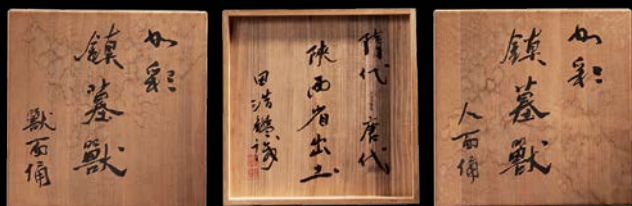 加彩
鎮墓獸
獸面俑
隋代 唐代
陝西省出土
田浩鑑識
加彩
鎮墓獸
人面俑